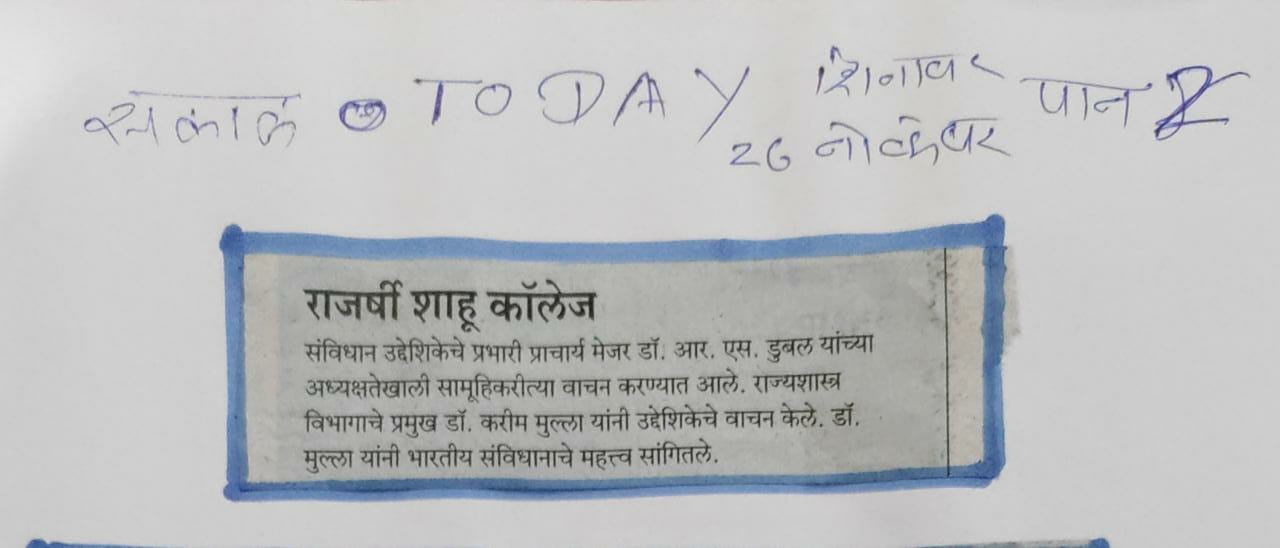 सकाळ TODAY शनिवार पान 2
26 नोव्हेंबर
राजर्षी शाहू कॉलेज
संविधान उद्देशिकेचे प्रभारी प्राचार्य मेजर डॉ. आर. एस. डुबल यांच्या
अध्यक्षतेखाली सामूहिकरीत्या वाचन करण्यात आले. राज्यशास्त्र
विभागाचे प्रमुख डॉ. करीम मुल्ला यांनी उद्देशिकेचे वाचन केले. डॉ.
मुल्ला यांनी भारतीय संविधानाचे महत्त्व सांगितले.